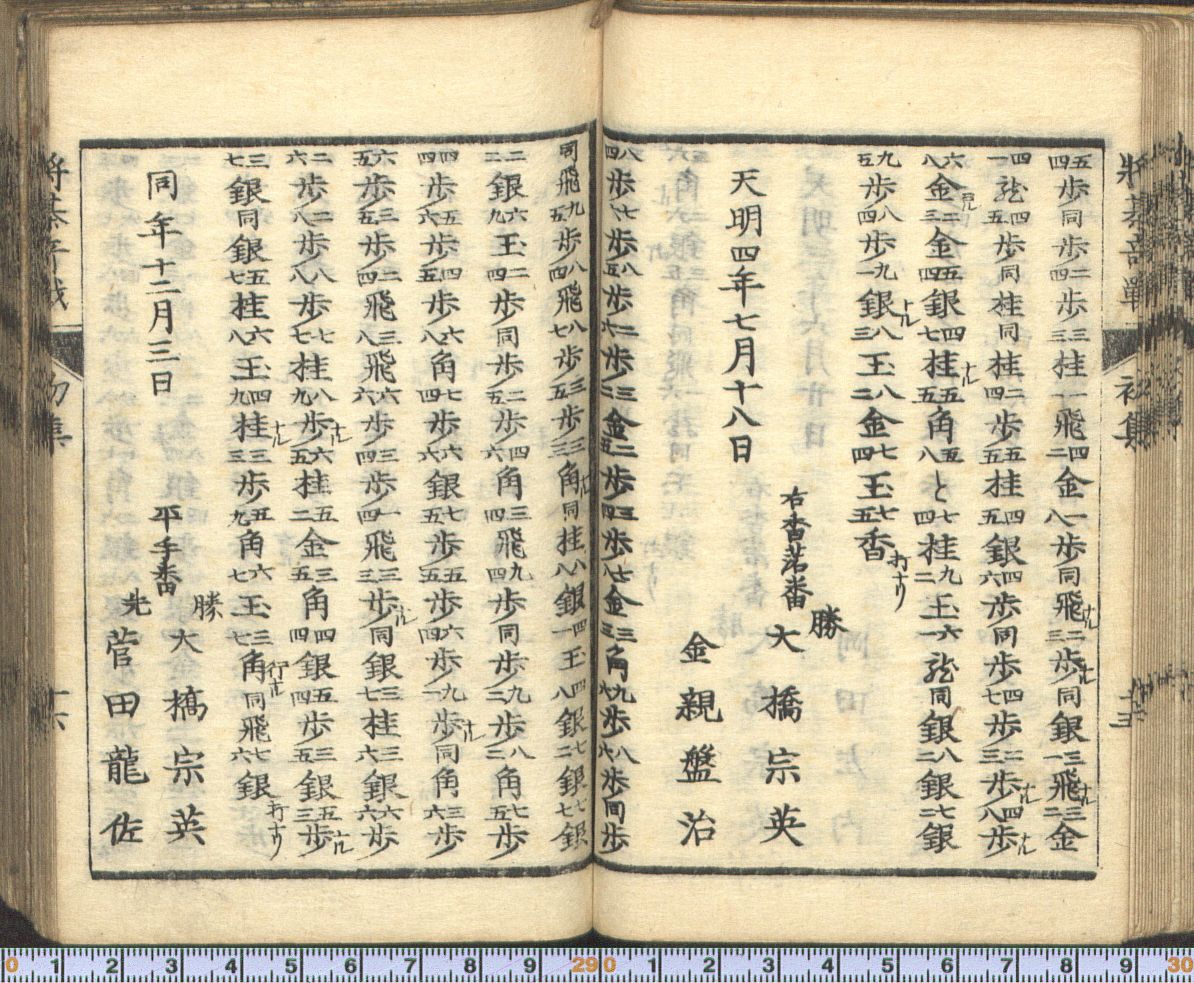 將棊奇戰　初集　十五
五四歩同歩二四歩三三桂一一飛四二金一八歩同飛ナル二三歩ナル同銀三一飛ナル三二金
四一竜四五歩同桂同桂二四歩五五桂四五銀四六歩同歩四七歩二三歩ナル四八歩ナル
六八金二三金五四銀四七桂ナル五五角五八と七四桂九二玉六一竜同銀八二銀七二銀
九五歩八四歩九一銀ナル八三玉八二金七四玉七五香打ナリ
天明四年七月十八日
右香落番　勝　大橋宗英
金親盤治
八四歩七七歩八五歩二六歩三二金二五歩三四歩七八金三三角九六歩八六歩同歩
同飛九五歩八四飛八七歩三五歩三三角ナル同桂八八銀四一玉四八銀七二銀七七銀
二二銀六九玉二四歩同歩二五歩四六角三四飛九四歩同歩九二歩八三角七五歩
四四歩五六歩四五歩六八角七四歩六六銀七五歩五五歩六四歩九一歩ナル同角三六歩
六五歩三五歩二四飛三八飛六六歩ナル三四歩一四飛三三歩ナル同銀三七桂三六銀六六歩
二六歩二八歩八八歩七七桂八九歩ナル六五桂五二金三五角四四銀五四歩三五銀五三歩ナル
三七銀同銀五七桂六八玉四九桂ナル三三歩五九角六七玉三七角行ナル同飛七六銀打ナリ
同年十二月三日
平手番　勝　大橋宗英
先　菅田龍佐
將棊奇戰　初集　十六